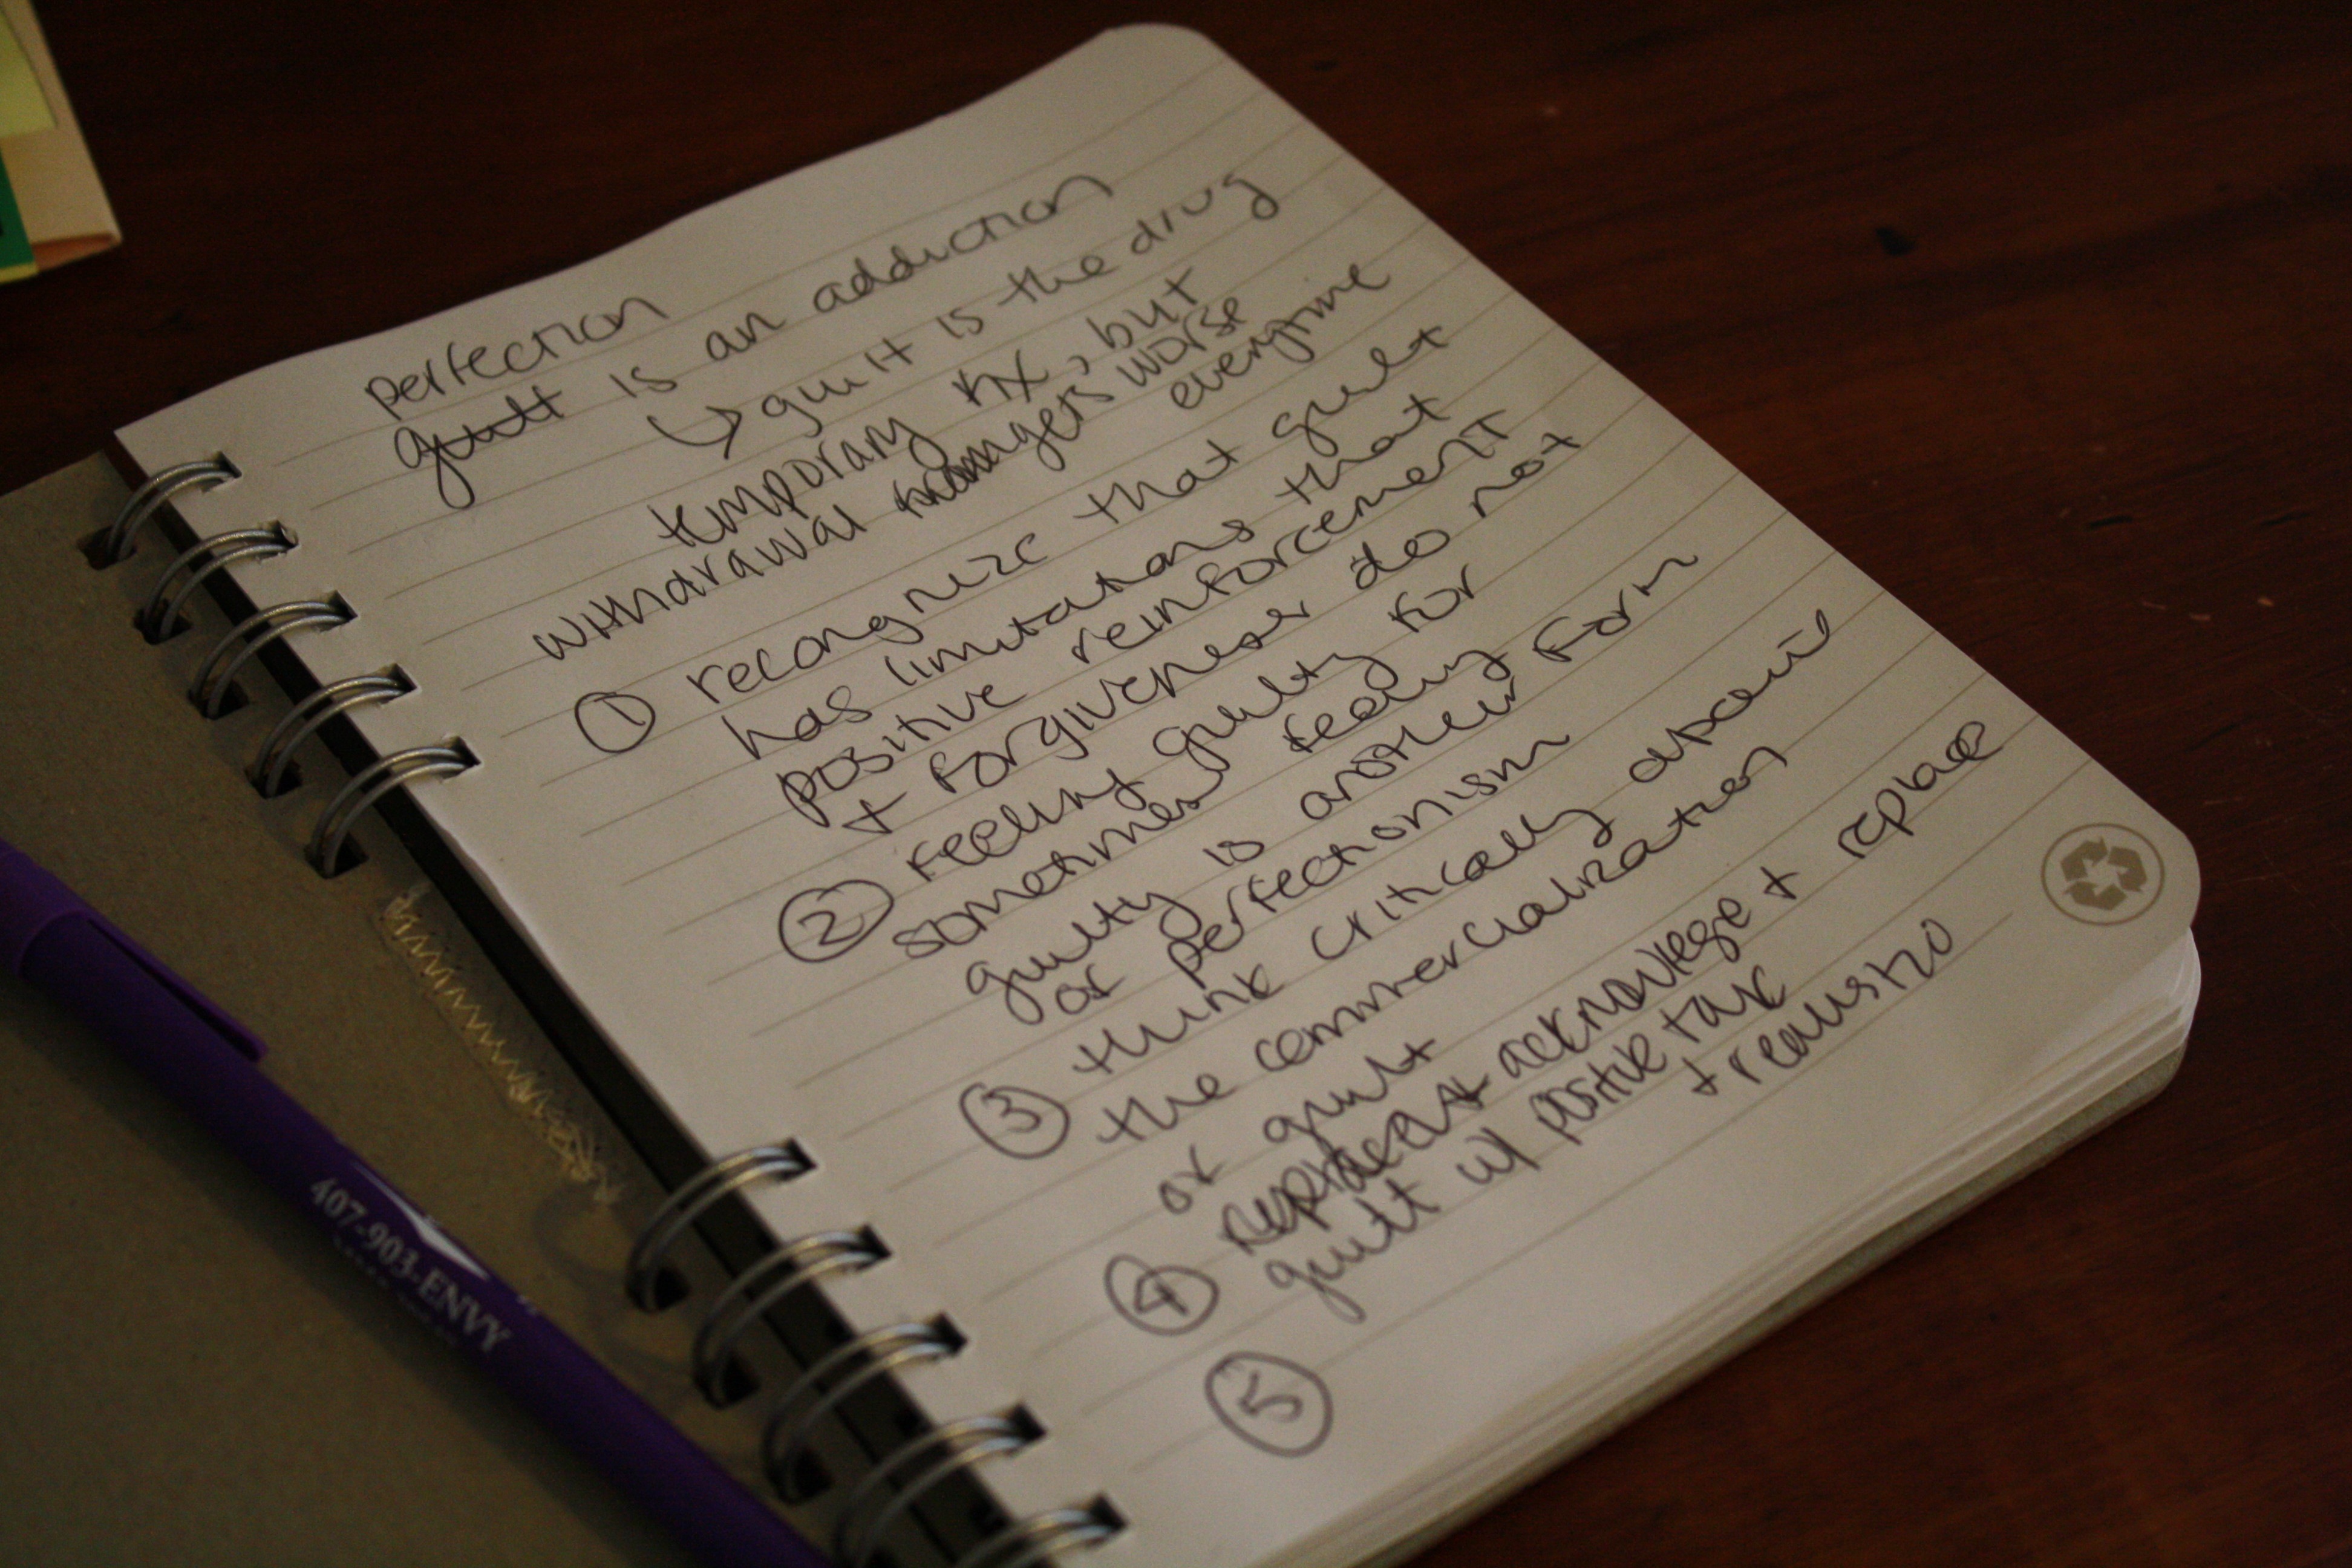 perfection
guilt is an addiction
↳ guilt is the drug
temporary fix, but
withdrawal gets worse
everytime
① recongnize that guilt
has limitations that
positive reinforcement
+ forgiveness do not
② feeling guilty for
sometimes feeling
guilty is another form
of perfectionism
③ think critically about
the commercialization
of guilt
④ replace it acknowlege + replace
guilt w/ positive talk
+ realistic
⑤
407-903-ENVY